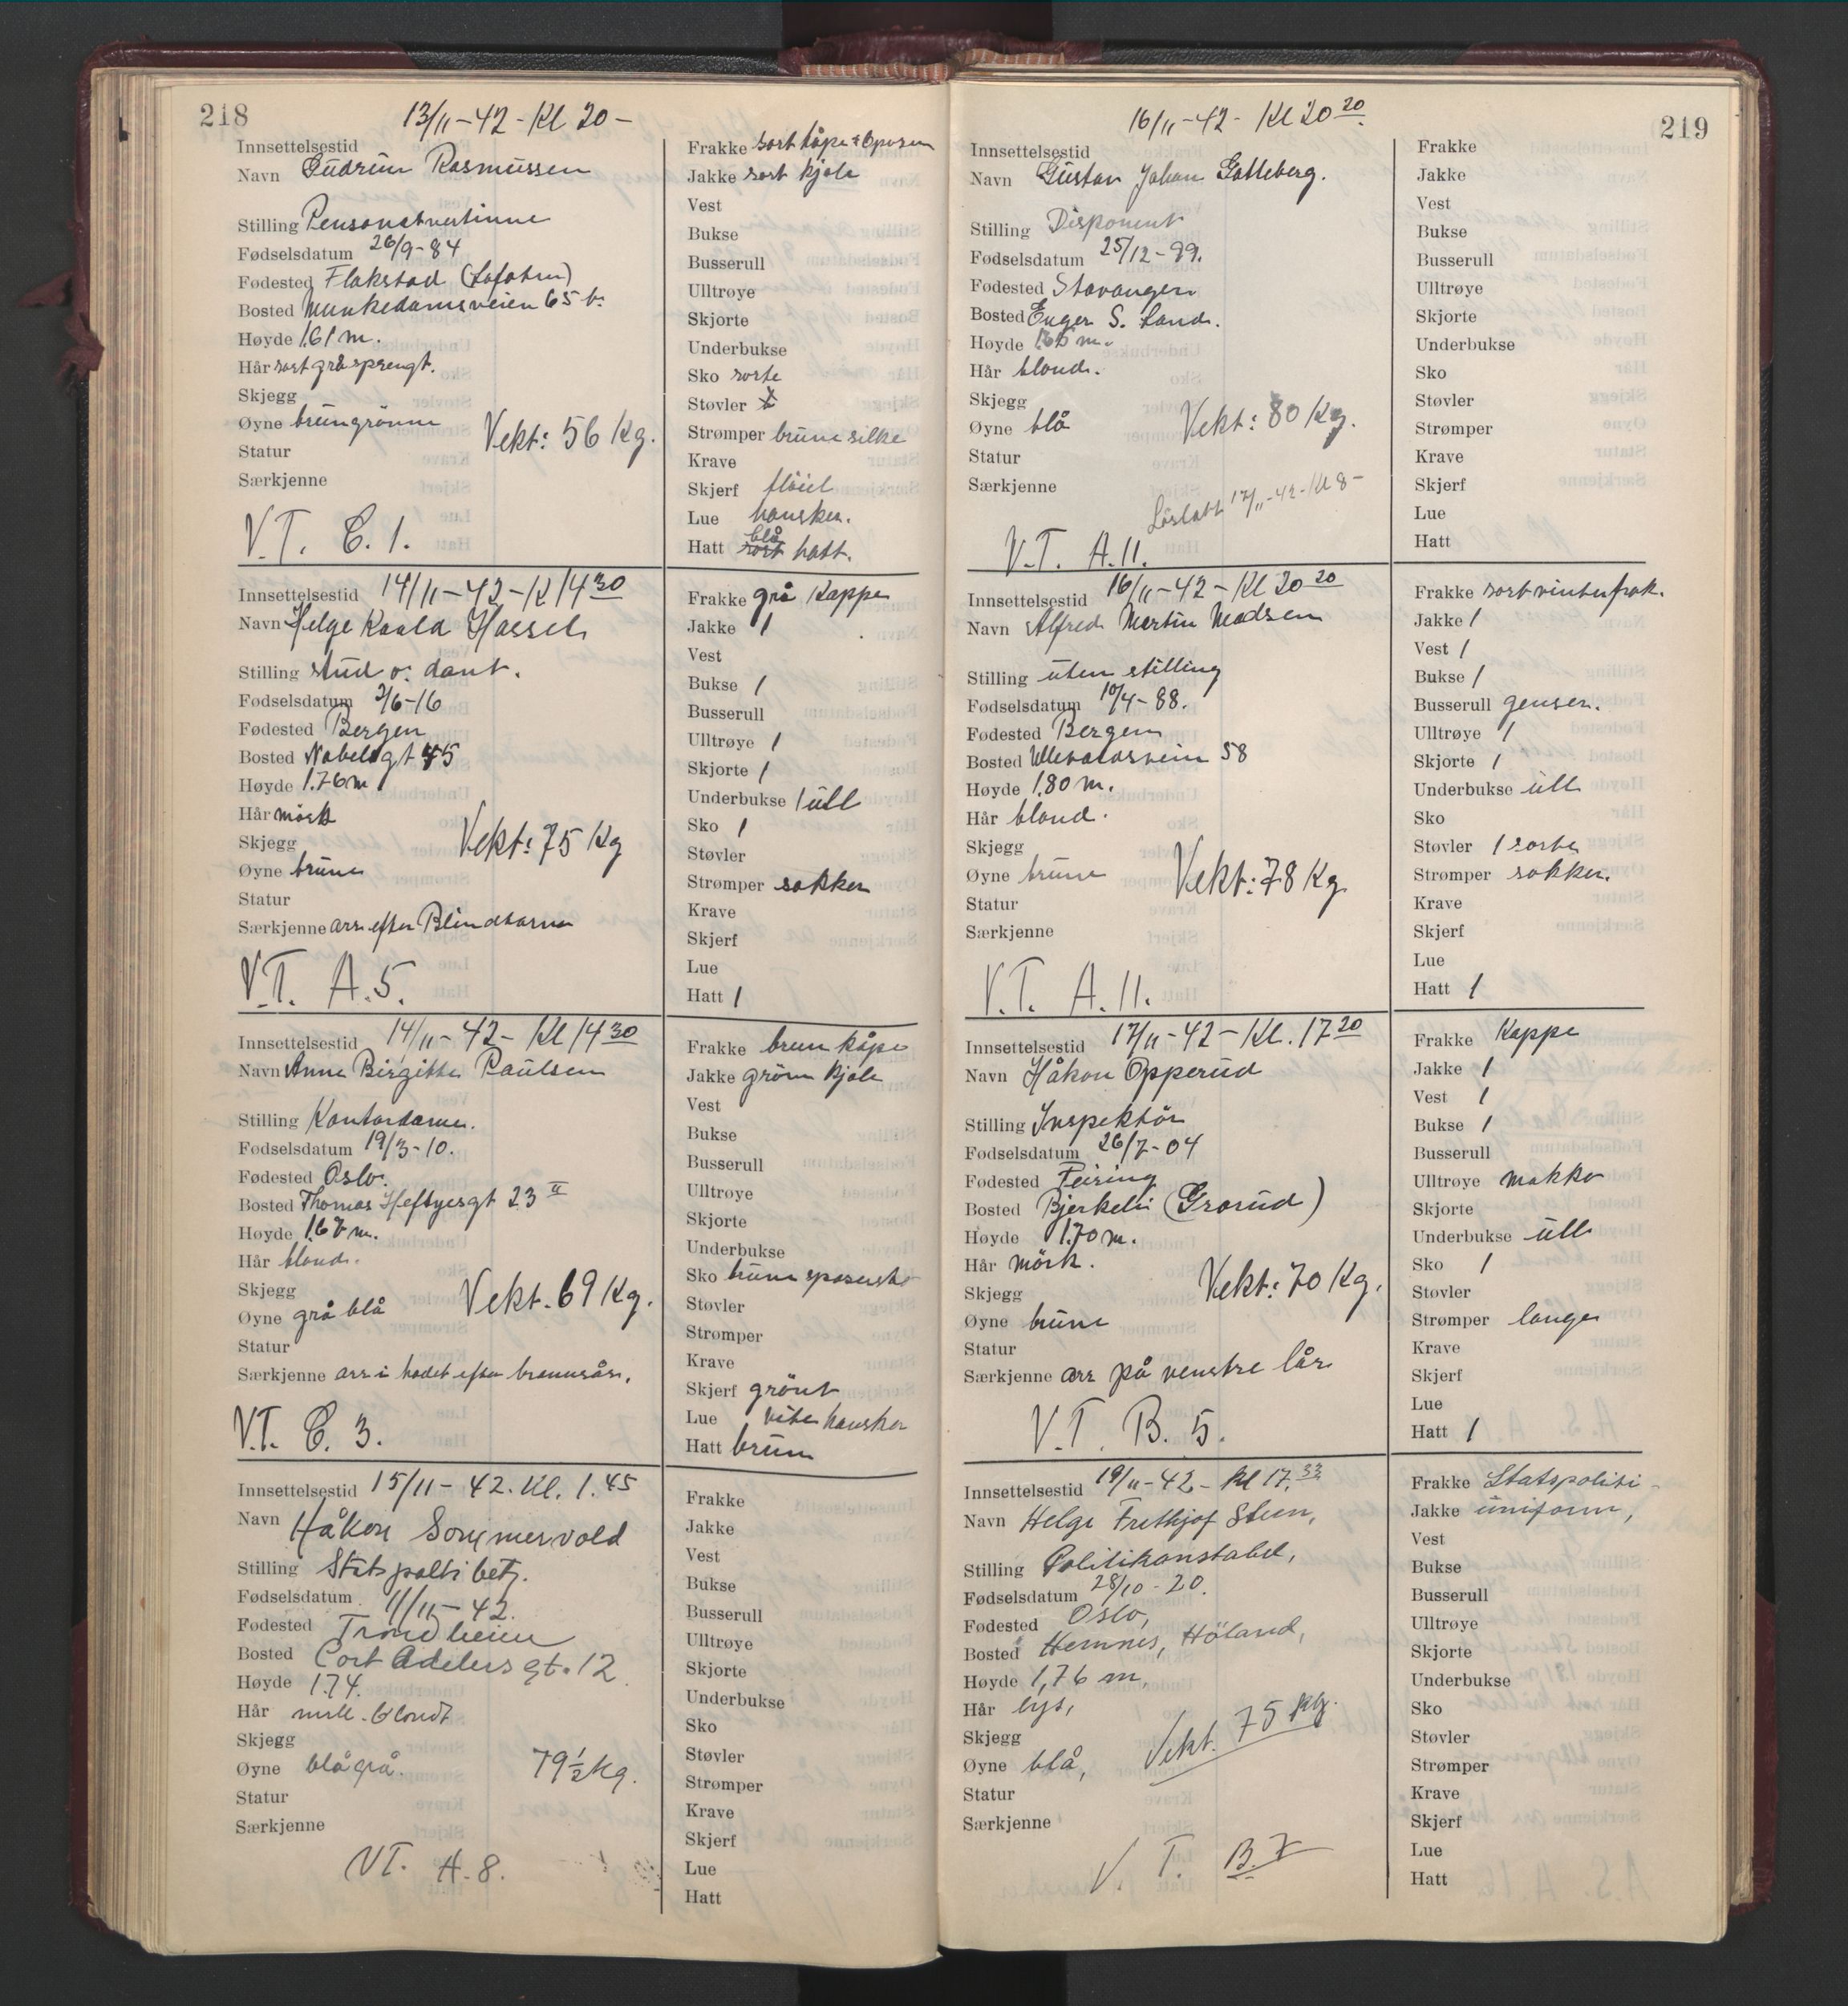 218
13/11-42 - Kl 20-
Innsettelsestid
Navn Gudrun Rasmussen
Stilling Pensonatvertinne
Fødselsdatum 26/9-84
Fødested Flakstad (Lofoten)
Bosted Munkedamsveien 65 b.
Høyde 1.61 m.
Hår sort gråsprengt.
Skjegg
Øyne brungrønne Vekt: 56 Kg.
Statur
Særkjenne
V.T. C.1.
Frakke sort kåpe
Jakke sort kjole
Vest
Bukse
Busserull
Ulltrøye
Skjorte
Underbukse
Sko sorte
Støvler
Strømper brune silke
Krave
Skjerf fløiel
Lue hansker.
Hatt blå sort hatt.
Innsettelsestid 14/11-42 - Kl 14 30
Navn Helge Kaald Hassel
Stilling stud o. dont.
Fødselsdatum 2/6-16
Fødested Bergen
Bosted Nobelsgt 45
Høyde 1.76 m
Hår mörk
Skjegg Vekt: 75 Kg
Øyne brune
Statur
Særkjenne arr efter Blindtarm
V.T. A.5.
Frakke grå Kappe
Jakke 1
Vest
Bukse 1
Busserull
Ulltrøye 1
Skjorte 1
Underbukse 1 ull
Sko 1
Støvler
Strømper sokker
Krave
Skjerf
Lue
Hatt 1
Innsettelsestid 14/11-42 - Kl 14 30
Navn Anne Birgitte Paulsen
Stilling Kontordame.
Fødselsdatum 19/3-10.
Fødested Oslo.
Bosted Thomas Heftyesgt 23 II
Høyde 1.67 m.
Hår blond.
Skjegg
Øyne grå blå Vekt. 69 Kg.
Statur
Særkjenne arr i hodet efter brannsår.
V.T. C.3.
Frakke brun kåpe
Jakke grön kjole
Vest
Bukse
Busserull
Ulltrøye
Skjorte
Underbukse
Sko brune
Støvler
Strømper
Krave
Skjerf grönt
Lue hvite hansker
Hatt brun
Innsettelsestid 15/11-42. Kl. 1.45
Navn Håkon Sommervold
Stilling Statspoliti betj.
Fødselsdatum 11/11-42.
Fødested Trondheim
Bosted Cort Adelers gt. 12
Høyde 1.74.
Hår mell. blondt
Skjegg
Øyne blågrå. 79 1/2 kg.
Statur
Særkjenne
VT. A-8.
Frakke
Jakke
Vest
Bukse
Busserull
Ulltrøye
Skjorte
Underbukse
Sko
Støvler
Strømper
Krave
Skjerf
Lue
Hatt
219
16/11-42 - Kl 20 20
Innsettelsestid
Navn Gustav Johan Gatteberg.
Stilling Disponent
Fødselsdatum 25/12-99.
Fødested Stavanger
Bosted Enger S. Land.
Høyde 1.65 m.
Hår blond.
Skjegg
Øyne blå Vekt: 80 Kg.
Statur
Særkjenne
Löslatt 17/11-42 - Kl 8-
V.T. A.11.
Frakke
Jakke
Vest
Bukse
Busserull
Ulltrøye
Skjorte
Underbukse
Sko
Støvler
Strømper
Krave
Skjerf
Lue
Hatt
Innsettelsestid 16/11-42 - Kl 20 20
Navn Alfred Martin Madsen
Stilling uten stilling
Fødselsdatum 10/4-88.
Fødested Bergen
Bosted Ullevålsveien 58
Høyde 1.80 m.
Hår blond.
Skjegg
Øyne brune Vekt: 78 Kg.
Statur
Særkjenne
V.T. A.11.
Frakke sort vinterfrak.
Jakke 1
Vest 1
Bukse 1
Busserull genser.
Ulltrøye 1
Skjorte 1
Underbukse ull
Sko
Støvler 1 sorte
Strømper sokker.
Krave
Skjerf
Lue
Hatt 1
Innsettelsestid 17/11-42 - Kl. 17 20
Navn Håkon Opperud
Stilling Inspektör
Fødselsdatum 26/7-04
Fødested Feiring
Bosted Bjerkeli (Grorud)
Høyde 1.70 m.
Hår mörk.
Skjegg Vekt: 70 Kg.
Øyne brune
Statur
Særkjenne arr på venstre lår
V.T. B.5.
Frakke Kappe
Jakke 1
Vest 1
Bukse 1
Busserull
Ulltrøye makko
Skjorte
Underbukse ull
Sko 1
Støvler
Strømper lange
Krave
Skjerf
Lue
Hatt 1
Innsettelsestid 19/11-42 - Kl 17.33
Navn Helge Frethjof Steen,
Stilling Politikonstabel,
Fødselsdatum 28/10-20.
Fødested Oslo,
Bosted Hemnes, Höland,
Høyde 1,76 m,
Hår lys,
Skjegg
Øyne blå, Vekt. 75 kg.
Statur
Særkjenne
V.T. B.7
Frakke Statspoliti-
Jakke uniform,
Vest
Bukse
Busserull
Ulltrøye
Skjorte
Underbukse
Sko
Støvler
Strømper
Krave
Skjerf
Lue
Hatt